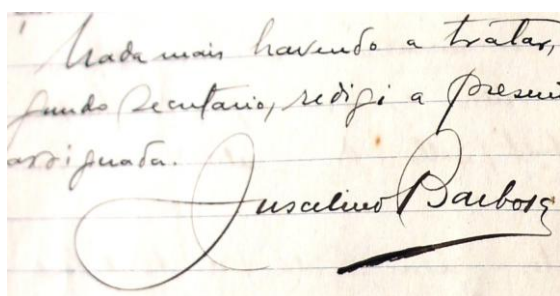 Nada mais havendo a tratar,
gundo secretario, redigi a presen
assignada.
Juscelino Barbosa